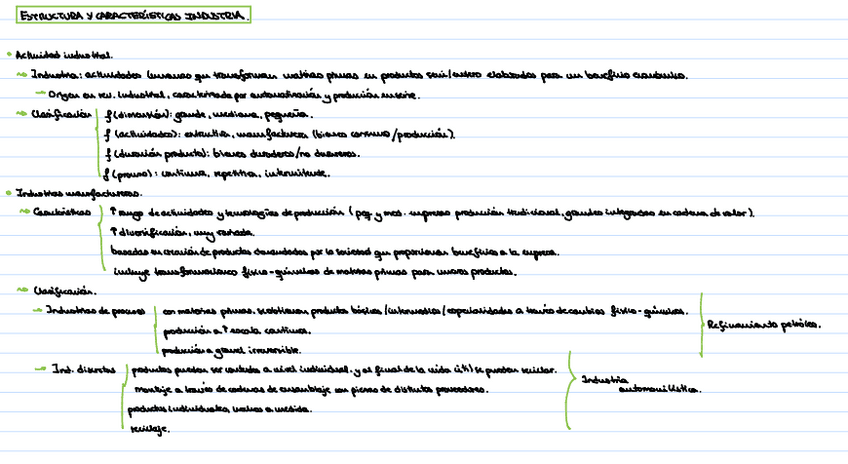 ESTRUCTURA Y CARACTERÍSTICAS INDUSTRIA.
Actividad industrial.
Industria: actividades humanas que transforman materias primas en productos semi/entero elaborados para un beneficio económico.
Origen en rev. industrial, caracterizada por automatización y producción en serie.
Clasificación
f (dimensión): grande, mediana, pequeña.
f (actividades): extractiva, manufacturera (bienes consumo/producción).
f (duración producto): bienes duraderos/no duraderos.
f (proceso): continua, repetitiva, intermitente.
Industrias manufactureras.
Características
↑ rango de actividades y tecnologías de producción (peq. y med. empresas producción tradicional, grandes integradas en cadena de valor).
↑ diversificación, muy variada.
basadas en creación de productos demandados por la sociedad que proporcionan beneficios a la empresa.
incluye transformaciones físico-químicas de materias primas para nuevos productos.
Clasificación.
Industrias de proceso
con materias primas. se obtienen productos básicos/intermedios/especialidades a través de cambios físico-químicos.
producción a ↑ escala, continua.
producción a granel irreversible.
Refinamiento petróleo.
Ind. discretas
productos pueden ser contados a nivel individual. y al final de la vida útil se pueden reciclar.
montaje a través de cadenas de ensamblaje con piezas de distintos proveedores.
productos individuales, a medida.
reciclaje.
Industria
automovilística.